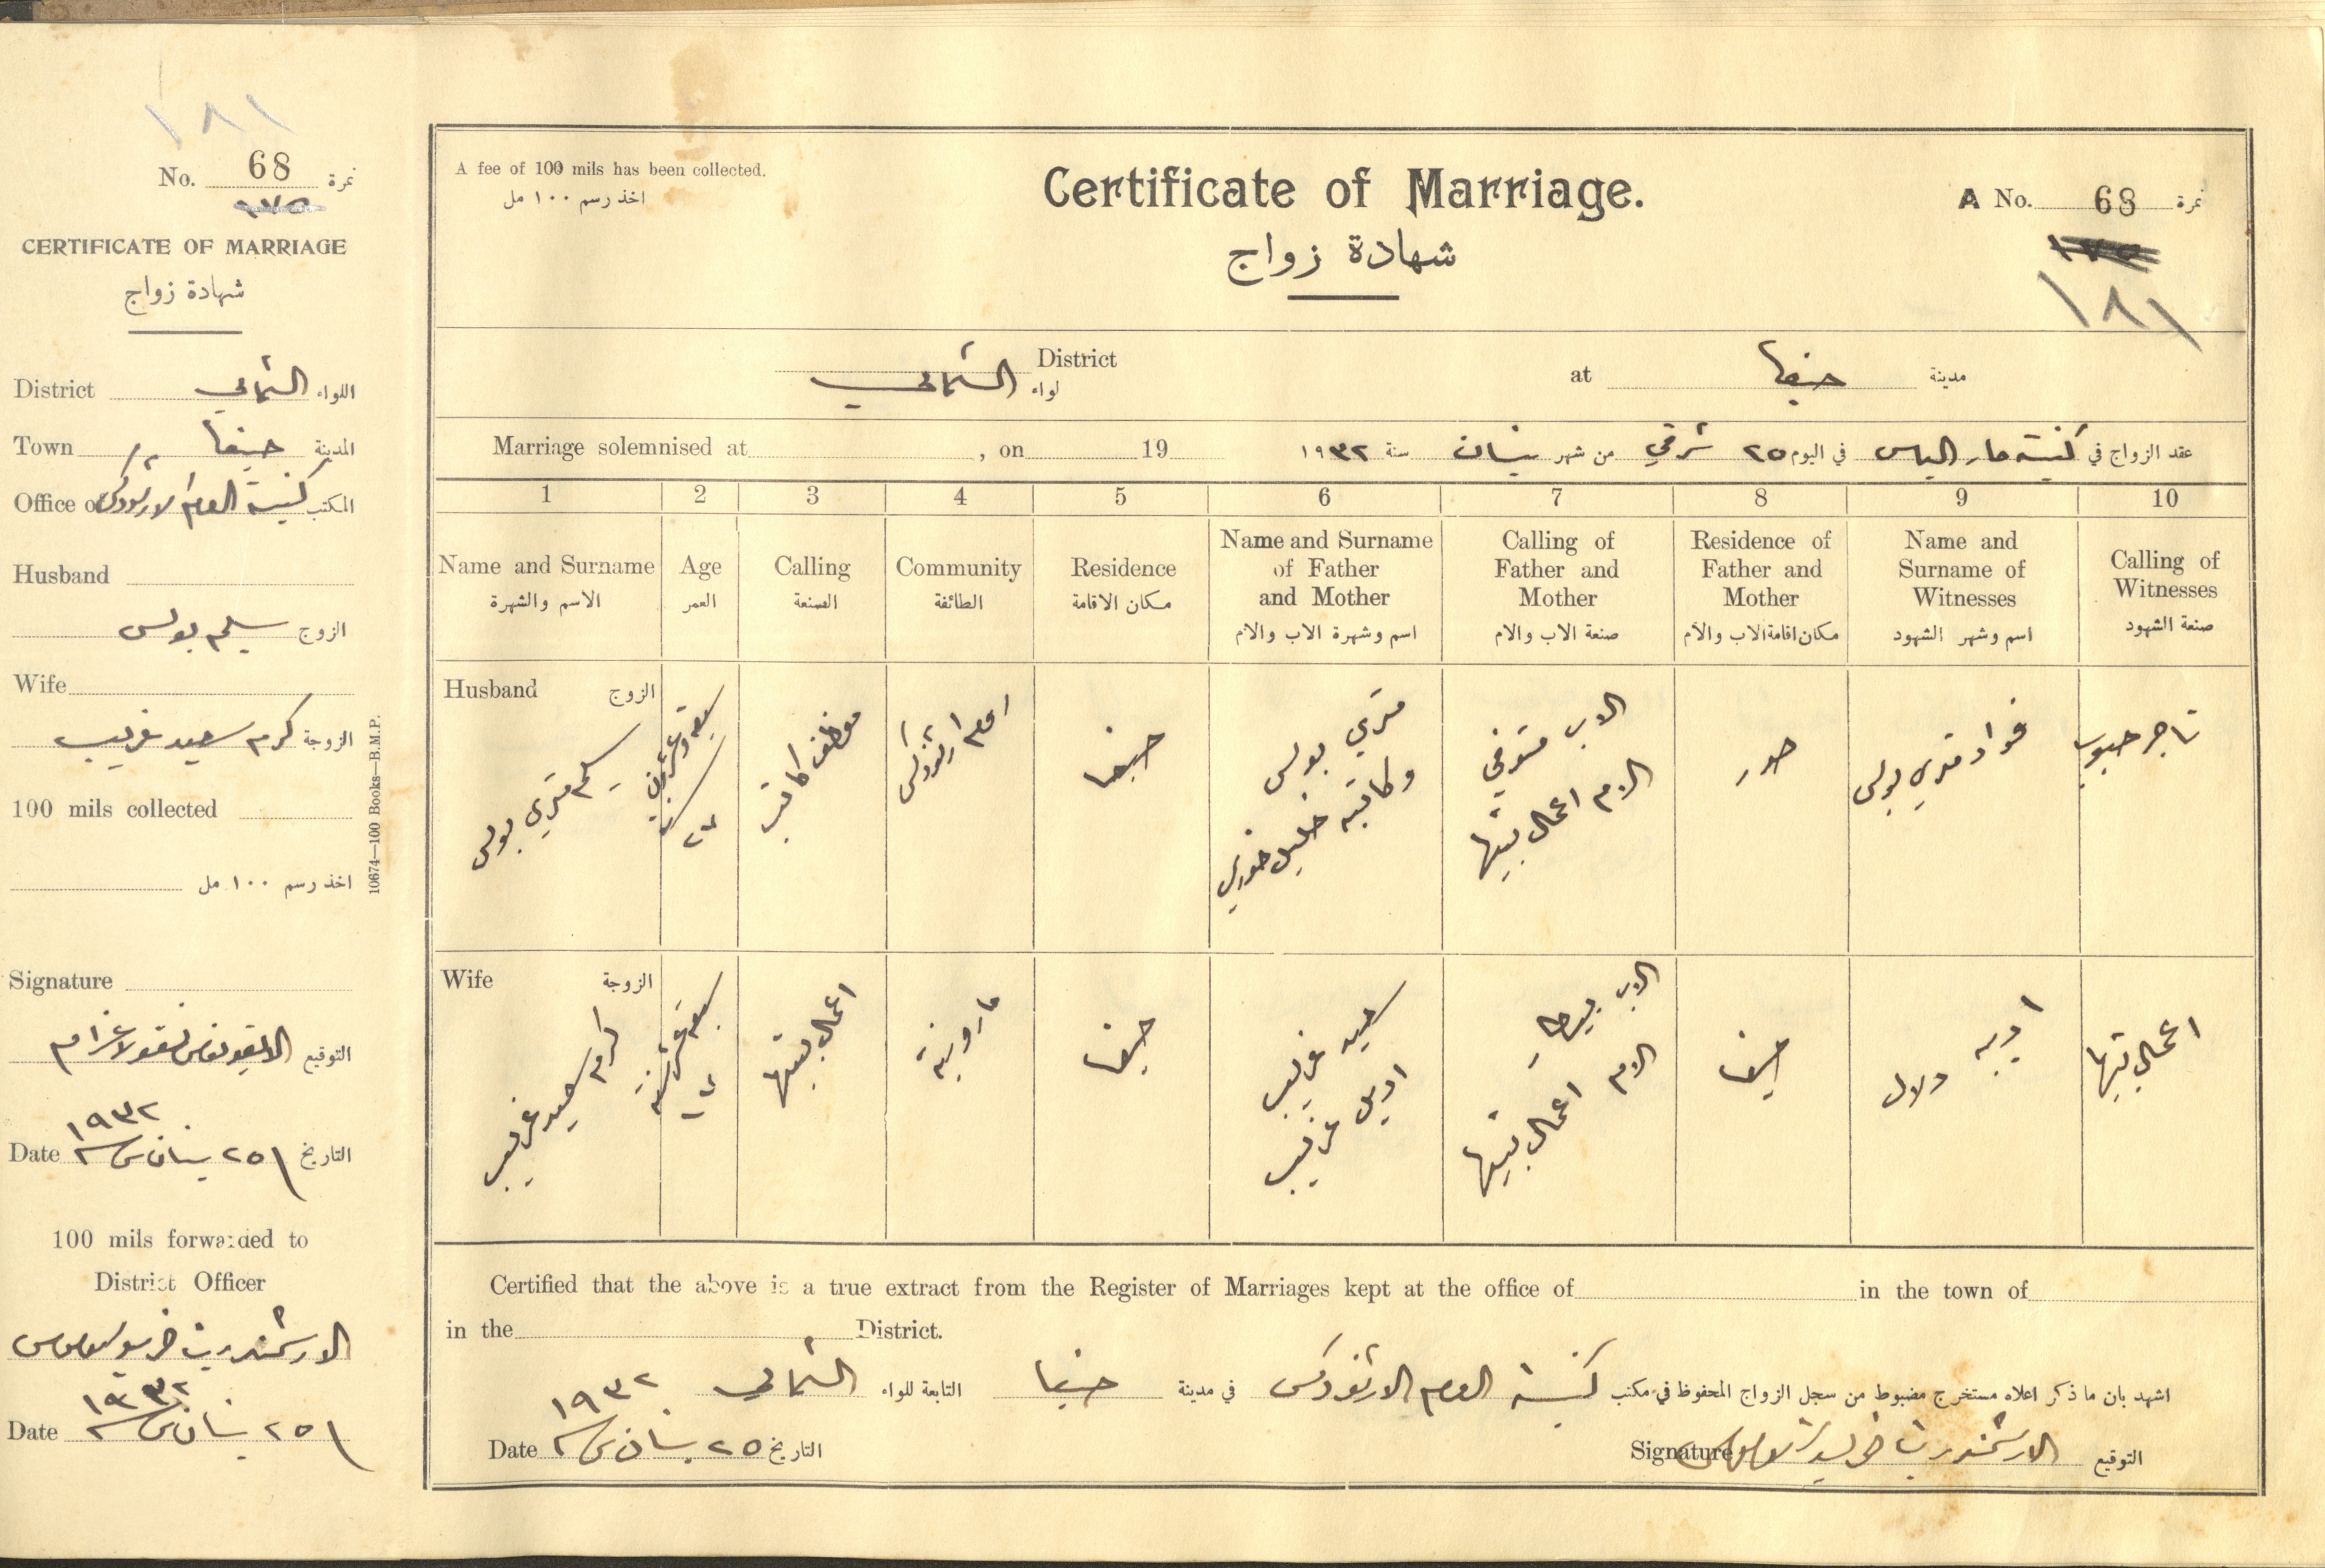 ١٨١
No. 68 نمرة
CERTIFICATE OF MARRIAGE
شهادة زواج
District الشمالي اللواء
Town حيفا المدينة
Office of كنيسة الروم الارثوذكس المكتب
Husband
الزوج سليم بولس
Wife
الزوجة كرم سعيد غريب
100 mils collected
اخذ رسم ١٠٠ مل
Signature
التوقيع
Date ٢٥ نيسان ش سنة ١٩٣٢ التاريخ
100 mils forwarded to
District Officer
الارشمندريت
Date ٢٥ نيسان ش سنة ١٩٣٢
10674—100 Books—B.M.P.
A fee of 100 mils has been collected.
اخذ رسم ١٠٠ مل
Certificate of Marriage.
شهادة زواج
A No. 68 نمرة
١٨١
District
لواء الشمالي
at حيفا مدينة
Marriage solemnised at , on 19
عقد الزواج في كنيسة مار الياس في اليوم ٢٥ شرقي من شهر نيسان سنة ١٩٣٢
1 2 3 4 5 6 7 8 9 10
Name and Surname
الاسم والشهرة
Age
العمر
Calling
الصنعة
Community
الطائفة
Residence
مكان الاقامة
Name and Surname
of Father
and Mother
اسم وشهرة الاب والام
Calling of
Father and
Mother
صنعة الاب والام
Residence of
Father and
Mother
مكان اقامة الاب والام
Name and
Surname of
Witnesses
اسم وشهر الشهود
Calling of
Witnesses
صنعة الشهود
Husband الزوج
سليم متري بولس
سبعة وعشرون سنة
٢٧
موظف كاتب
روم ارثوذكس
حيفا
متري بولس
وكاتبه خليل خوري
الاب متوفي
الام اعمال بيتها
صور
فواد متري بولس
تاجر حبوب
Wife الزوجة
كرم سعيد غريب
سبعة عشر سنة
١٧
اعمال بيتها
مارونية
حيفا
سعيد غريب
اديل غريب
الاب بيطار
الام اعمال بيتها
حيفا
اديبه دلال
اعمال بيتها
Certified that the above is a true extract from the Register of Marriages kept at the office of in the town of
in the District.
اشهد بان ما ذكر اعلاه مستخرج مضبوط من سجل الزواج المحفوظ في مكتب كنيسة الروم الارثوذكس في مدينة حيفا التابعة للواء الشمالي
Date ٢٥ نيسان ش سنة ١٩٣٢ التاريخ
Signature الارشمندريت التوقيع